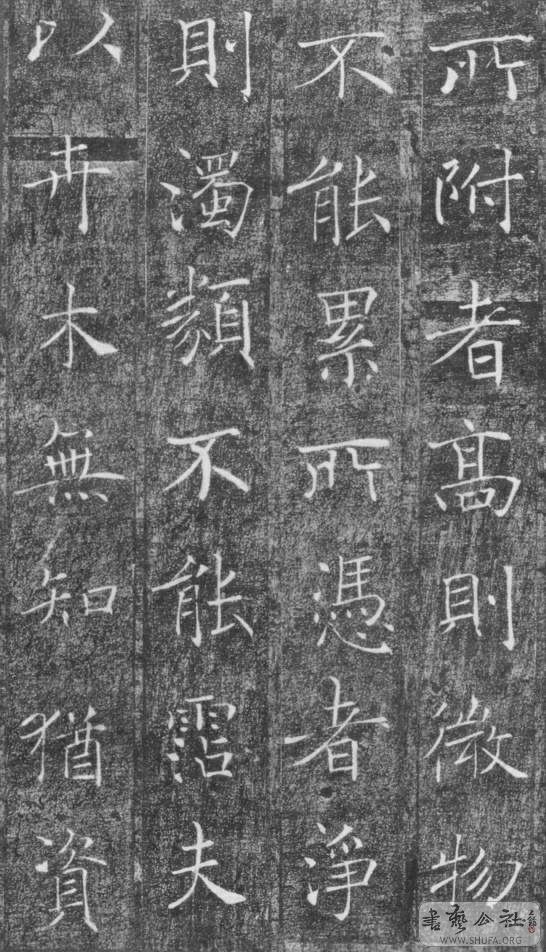 所附者高則微物
不能累所憑者淨
則濁類不能霑夫
以卉木無知猶資
書藝公社
WWW.SHUFA.ORG